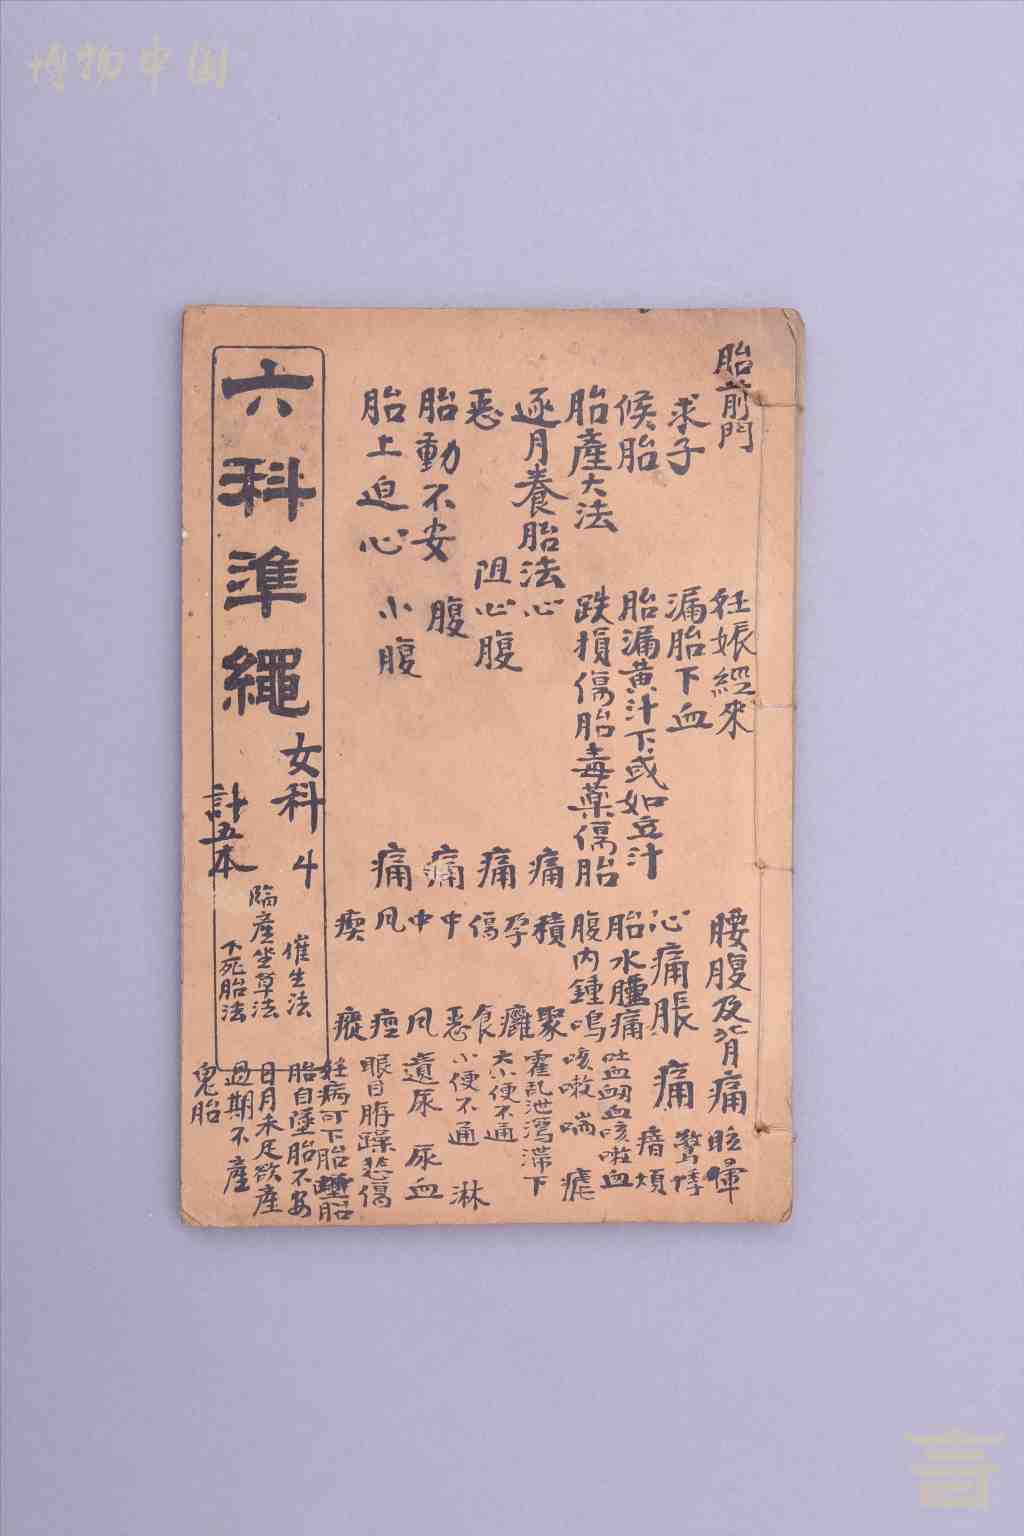 博物中国
胎前門
求子
候胎
胎產大法
逐月養胎法
惡阻
胎動不安
胎上迫心
妊娠經來
漏胎下血
胎漏黃汁下或如豆汁
跌損傷胎毒藥傷胎
心痛
心腹痛
腹痛
小腹痛
腰腹及背痛
心痛脹痛
胎水腫痛
腹內鍾鳴
積聚
孕癰
傷食
中惡
中風
風痙
瘈瘲
眩暈
驚悸
瘖煩
吐血衂血咳嗽血
咳嗽喘瘧
霍乱泄瀉滞下
大小便不通
小便不通淋
遺尿尿血
眼目臓躁悲傷
妊病可下胎
胎自墮胎不安
日月未足欲產
過期不產
鬼胎
六科準繩
女科
計五本
催生法
臨產坐草法
下死胎法